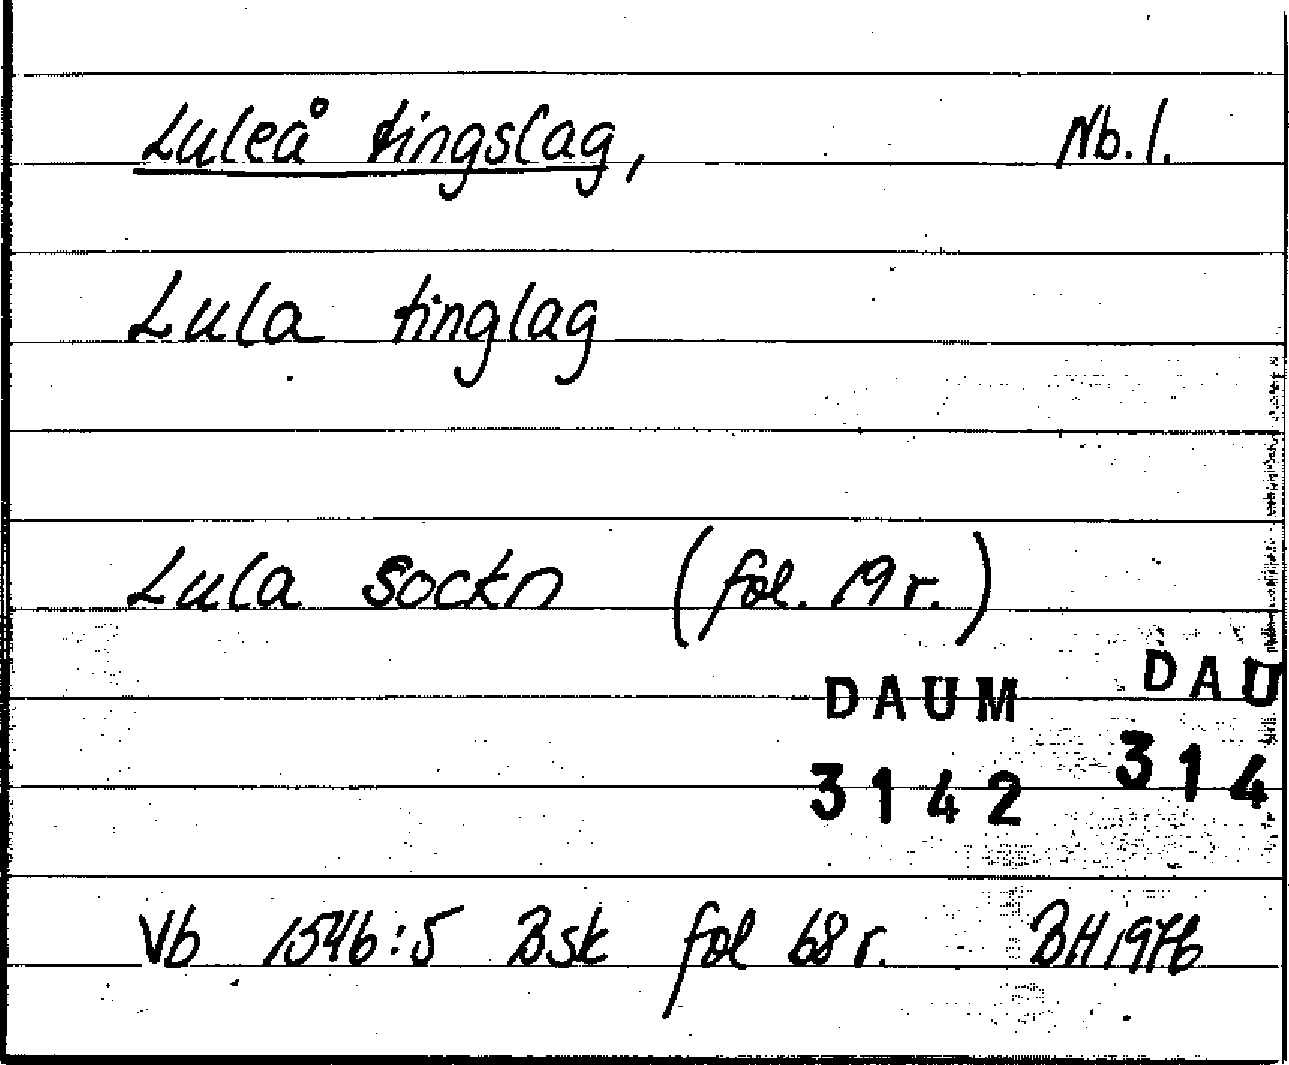 Luleå tingslag, Nb. l.
Lula tinglag
Lula sockn (fol. 19 r.)
DAUM DAU
3142 314
Vb 1546:5 Bsk fol 68 r. BH 1976